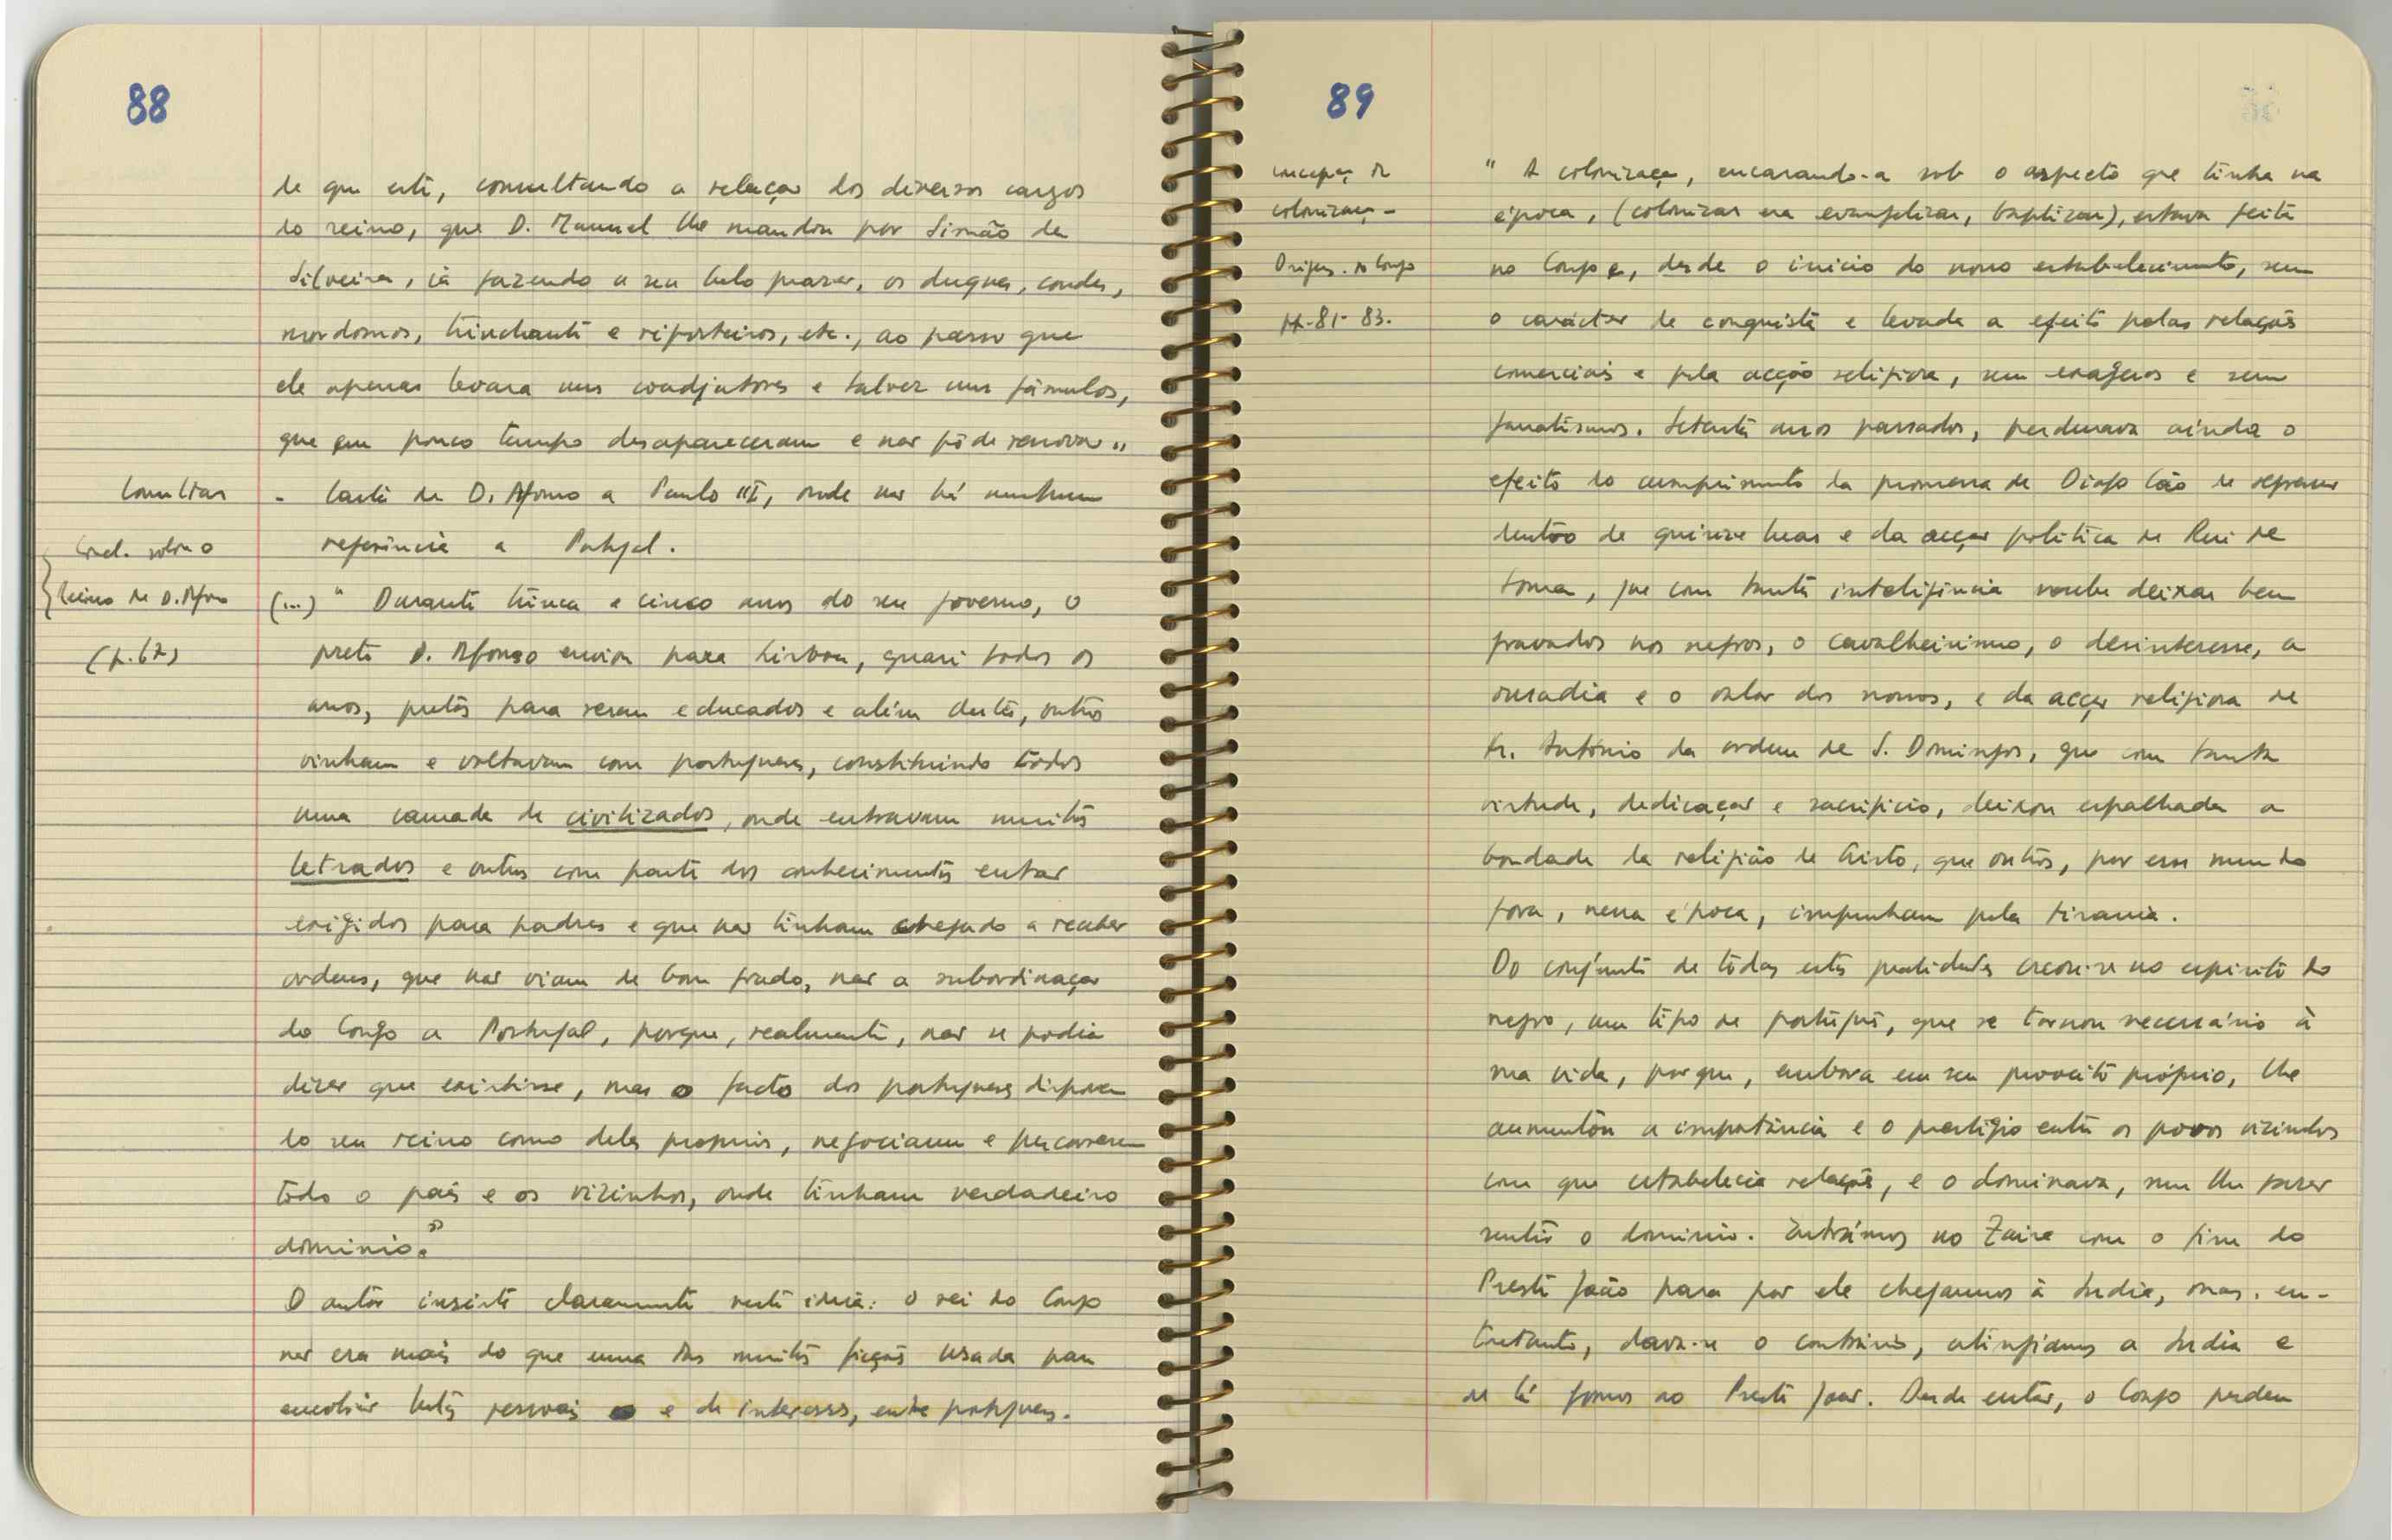 88
de que este, consultando a relação dos diversos cargos
do reino, que D. Manuel lhe mandou por Simão da
Silveira, ia fazendo a seu belo prazer, os duques, condes,
mordomos, trinchante e reposteiros, etc., ao passo que
ele apenas levara uns coadjutores e talvez uns fâmulos,
que em pouco tempo desapareceram e não pôde renovar"
Consultar - Carta de D. Afonso a Paulo III, onde não há nenhuma
referência a Portugal.
Concl. sobre o
Reino de D. Afonso
(p. 67)
(...) " Durante trinca e cinco anos do seu governo, o
preto D. Afonso enviou para Lisboa, quasi todos os
anos, pretos para serem educados e além destes, outros
vinham e voltavam com portugueses, constituindo todos
uma camada de civilizados, onde entravam muitos
letrados e outros com parte dos conhecimentos então
exigidos para padres e que não tinham chegado a receber
ordens, que não viam de bom grado, não a subordinação
do Congo a Portugal, porque, realmente, não se podia
dizer que existisse, mas o facto dos portugueses disporem
do seu reino como deles próprios, negociarem e percorrerem
todo o país e os vizinhos, onde tinham verdadeiro
domínio."
O autor insiste claramente nesta ideia: o rei do Congo
não era mais do que uma das muitas ficções usada para
encobrir lutas pessoais e de interesses, entre portugueses.
89
concepç. de
colonizaç-
Origens. do Congo
pp-81-83.
" A colonizaçã, encarando-a sob o aspecto que tinha na
época, (colonizar era evangelizar, baptizar), estava feita
no Congo e, desde o início do nosso estabelecimento, sem
o carácter de conquista e levada a efeito pelas relações
comerciais e pela acção religiosa, sem exageros e sem
fanatismos. Setenta anos passados, perdurava ainda o
efeito do cumprimento da promessa de Diogo Cão de regressar
dentro de quinze luas e da acção política de Rui de
Sousa, que com tanta inteligência soube deixar bem
gravados nos negros, o cavalheirismo, o desinteresse, a
ousadia e o valor dos nossos, e da acção religiosa de
Fr. António da ordem de S. Domingos, que com tanta
virtude, dedicação e sacrifício, deixou espalhada a
bondade da religião de Cristo, que outros, por esse mundo
fora, nessa época, impunham pela tirania.
Do conjunto de todas estas qualidades criou-se no espírito do
negro, um tipo de português, que se tornou necessário à
sua vida, porque, embora em seu proveito próprio, lhe
aumentou a importância e o prestígio entre os povos vizinhos
com que estabelecia relações, e o dominava, sem lhe fazer
sentir o domínio. Entrámos no Zaire com o fim do
Preste João para por ele chegarmos à India, mas, en-
tretanto, dava-se o contrário, atingíamos a India e
de lá fomos ao Preste João. Desde então, o Congo perdeu